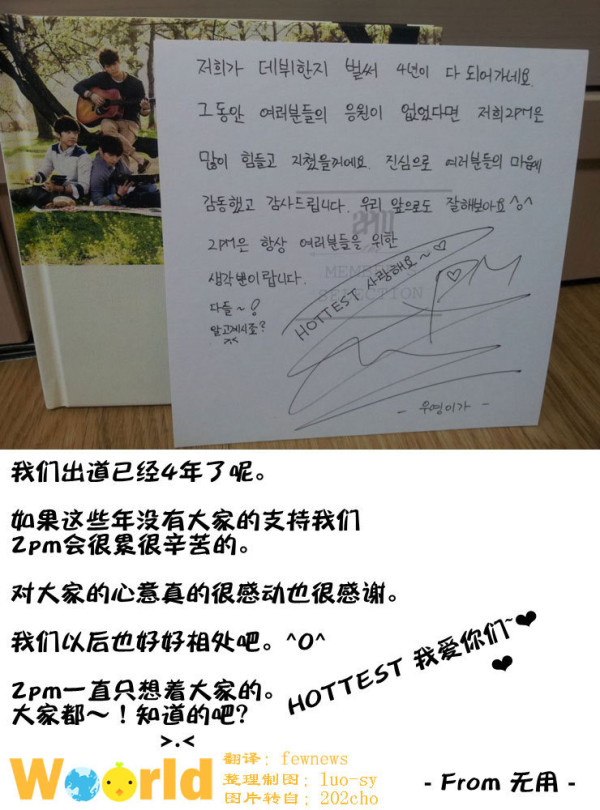 저희가 데뷔한지 벌써 4년이 다 되어가네요.
그동안 여러분들의 응원이 없었다면 저희2PM은
많이 힘들고 지쳤을꺼에요. 진심으로 여러분들의 마음에
감동했고 감사드립니다. 우리 앞으로도 잘해보아요 ^o^
2PM은 항상 여러분들을 위한
생각뿐이랍니다.
다들~!
알고계시죠?
>.<
HOTTEST 사랑해요~♡
SELECTION
- 우영이가 -
我们出道已经4年了呢。
如果这些年没有大家的支持我们
2pm会很累很辛苦的。
对大家的心意真的很感动也很感谢。
我们以后也好好相处吧。^O^
HOTTEST 我爱你们~❤
❤
2pm一直只想着大家的。
大家都～！知道的吧?
>.<
Woorld
翻译：fewnews
整理制图：luo-sy
图片转自：202cho
- From 无用 -